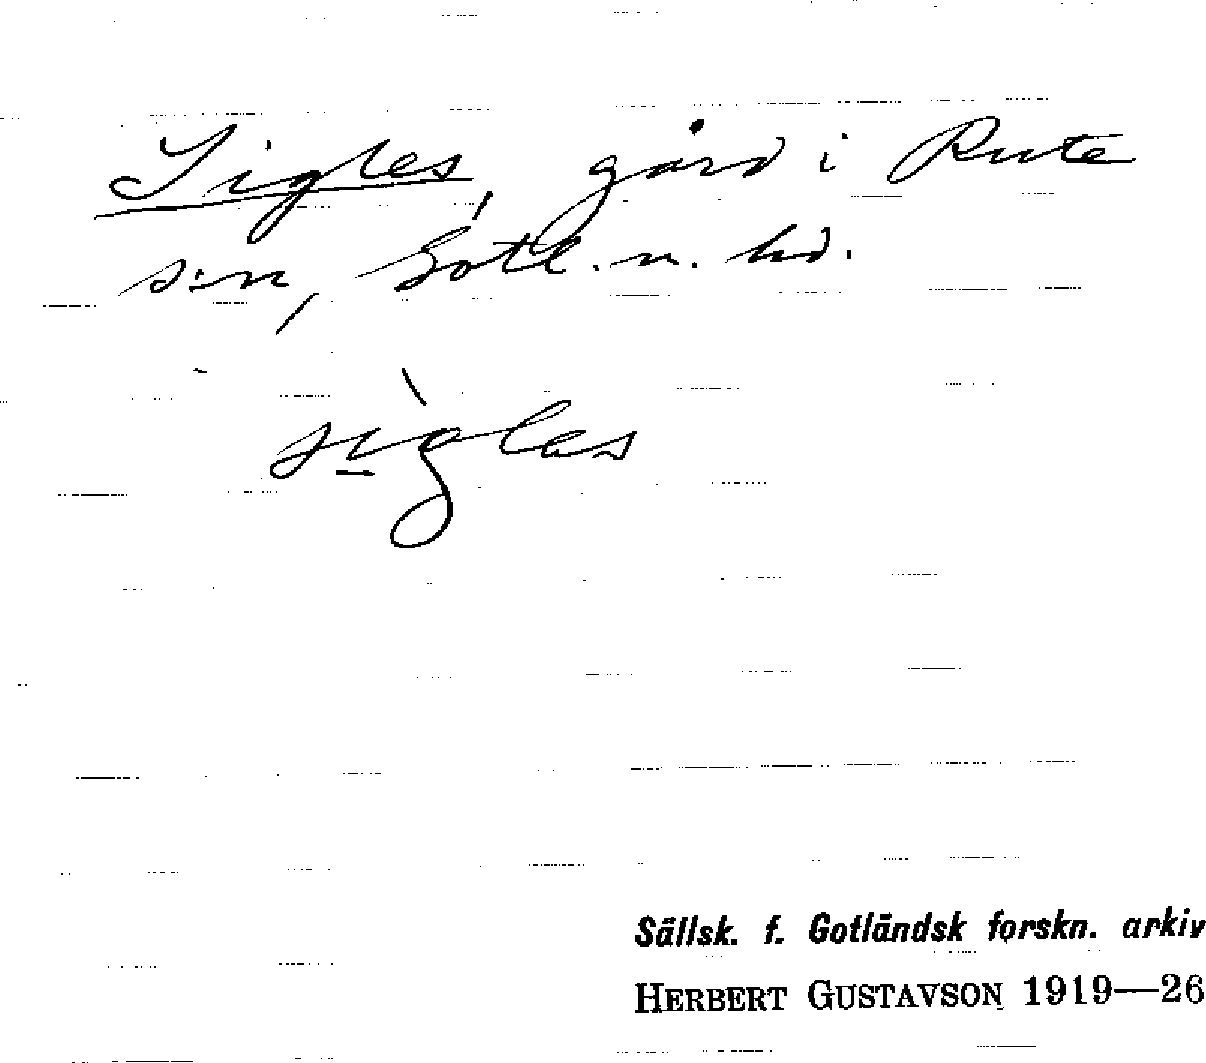 Sigles, gård i Rute
s:n, Gotl. n. hd.
sìgles
Sällsk. f. Gotländsk forskn. arkiv
HERBERT GUSTAVSON 1919—26